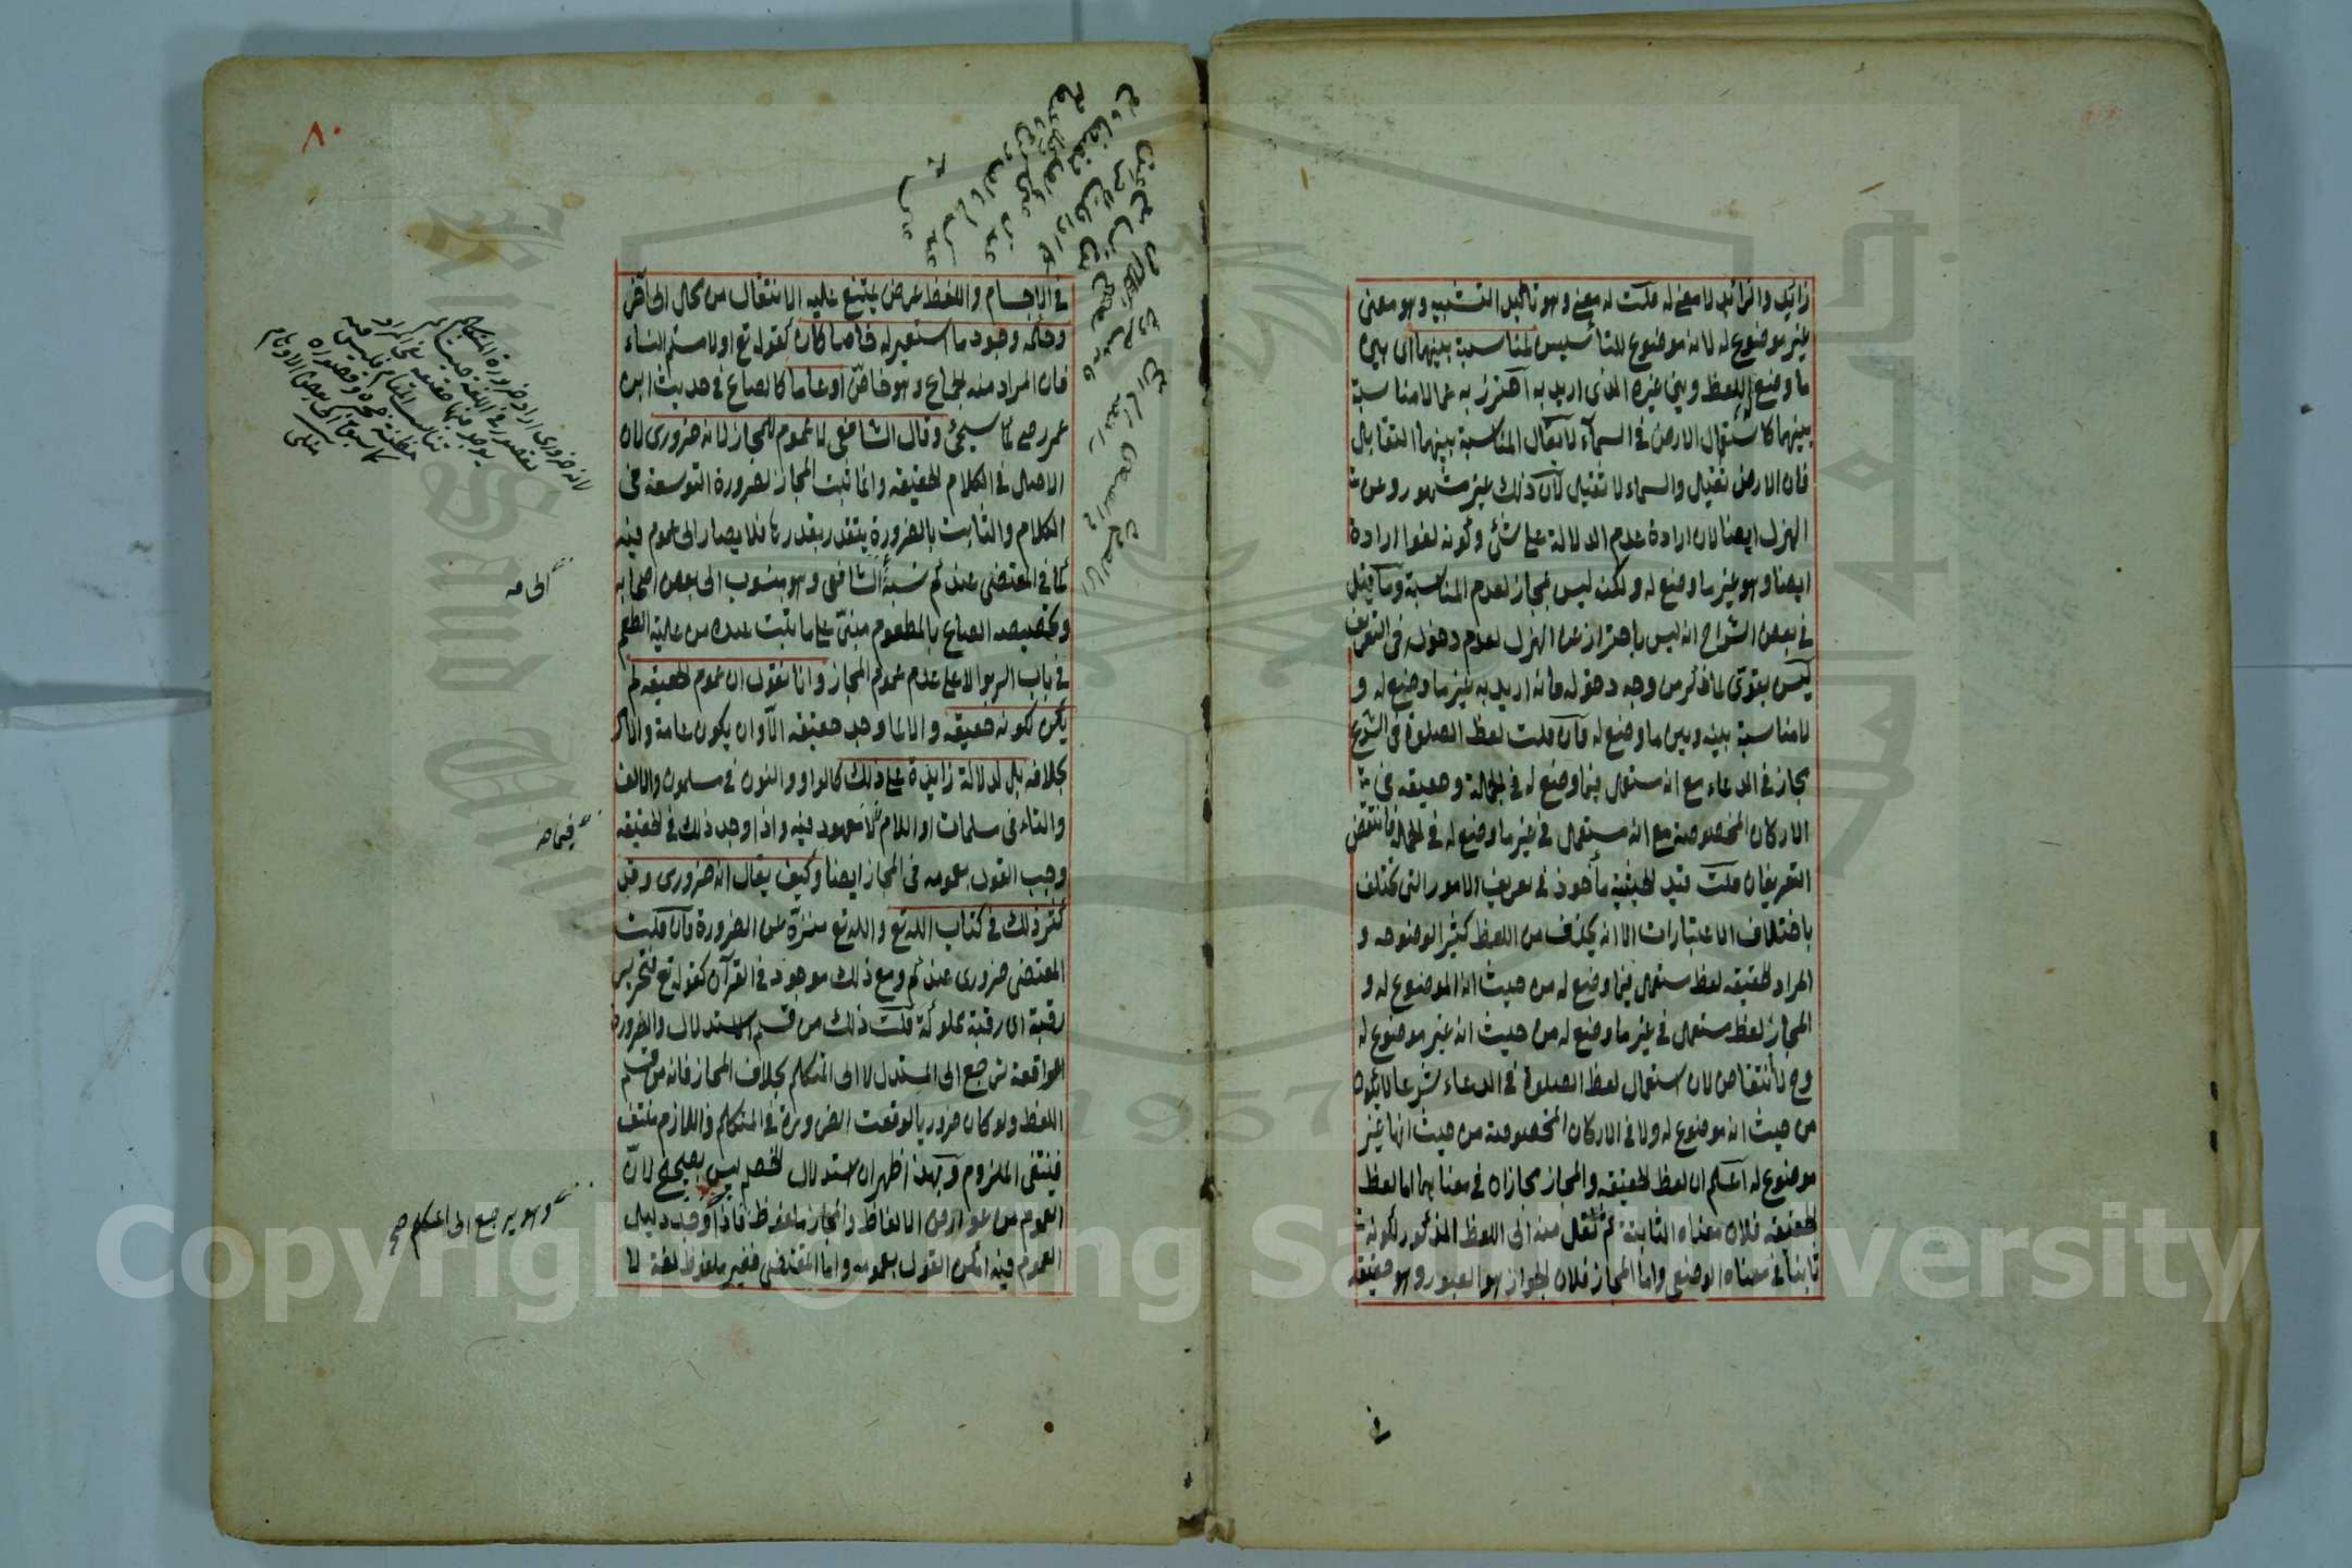 زايد والزائد لا معنى له قلت له معنى وهو تأكيد التشبيه وهو معنى
غير موضوع له لانه موضوع للتأسيس لمناسبة بينهما اى بين
ما وضع اللفظ وبين غيره الذى اريد به احترز به عما لا مناسبة
بينهما كاستعمال الارض فى السماء لا يقال المناسبة بينهما التقابل
فان الارض ثقيل والسماء لا ثقيل لان ذلك غير مشهور وعن
الهزل ايضا لان ارادة عدم الدلالة على شئ وكونه لغوا ارادة
ايضا وهو غير ما وضع له ولكنه ليس بمجاز لعدم المناسبة وما قيل
فى بعض الشراح انه ليس باحتراز عن الهزل لعدم دخوله فى التعريف
ليس بقوى لما ذكر من وجه دخوله فانه اريد به غير ما وضع له و
لا مناسبة بينه وبين ما وضع له فان قلت لفظ الصلوة فى الشرع
مجاز فى الدعاء مع انه مستعمل فيما وضع له فى الجملة وحقيقة فى
الاركان المخصوصة مع انه مستعمل فى غير ما وضع له فى الجملة فانتقض
التعريفان قلت قيد الحيثية مأخوذ فى تعريف الامور التى تختلف
باختلاف الاعتبارات الا انه يحذف من اللفظ كثيرا لوضوحه و
المراد الحقيقة لفظ مستعمل فيما وضع له من حيث انه الموضوع له و
المجاز لفظ مستعمل فى غير ما وضع له من حيث انه غير موضوع له
وح لا انتقاض لان استعمال لفظ الصلوة فى الدعاء شرعا لا يكون
من حيث انه موضوع له ولا فى الاركان المخصوصة من حيث انها غير
موضوع له اعلم ان لفظ الحقيقة والمجاز مجازان فى معناهما اما لفظ
الحقيقة فلان معناه الثابتة ثم نقل منه الى اللفظ المذكور لكونه
ثابتا فى معناه الوضعى واما المجاز فلان الجواز هو العبور وهو حقيقة
فى
٨٠
فى الاجسام واللفظ عرض يمتنع عليه الانتقال من محل الى آخر
وحكمه وجود ما استعير له خاصا كان كقوله تع اولامستم النساء
فان المراد منه الجماع وهو خاص او عاما كالصاع فى حديث ابن
عمر رضى كما سيجئ وقال الشافعى لا عموم للمجاز لانه ضرورى لان
الاصل فى الكلام الحقيقة وانما ثبت المجاز لضرورة التوسعة فى
الكلام والثابت بالضرورة يتقدر بقدرها فلا يصار الى عموم فيه
كما فى المقتضى عندكم نسبة الشافعى وهو منسوب الى بعض اصحابه
وتخصيصه الصاع بالمطعوم مبنى على ما ثبت عنده من علية الطعم
فى باب الربوا لا على عدم عموم المجاز وانا نقول ان عموم الحقيقة لم
يكن لكونه حقيقة والا لما وجد حقيقة الا وان يكون عامة والامر
بخلافه بل لدلالة زايدة على ذلك كالواو والنون فى مسلمون والالف
والتاء فى مسلمات او اللام لا معهود فيه واذا وجد ذلك فى الحقيقة
وجب القول بعمومه فى المجاز ايضا وكيف يقال انه ضرورى وقد
كثر ذلك فى كتاب الله تع والله تع منزه عن الضرورة فان قلت
المقتضى ضرورى عندكم ومع ذلك موجود فى القرآن كقوله تع فتحرير
رقبة اى رقبة مملوكة قلت ذلك من قسم الاستدلال والضرورة
الواقعة ترجع الى المستدل لا الى المتكلم بخلاف المجاز فانه من قسم
اللفظ ولو كان ضروريا لوقعت الضرورة فى المتكلم واللازم منتف
فينتفى الملزوم وبهذا ظهر ان استدلال الخصم ليس بصحيح لان
العموم من عوارض الالفاظ والمجاز ملفوظ فاذا وجد دليل
العموم فيه امكن القول بعمومه واما المقتضى فغير ملفوظ لغة لا
وهو يرجع الى الحكم صح
Copyright © King Saud University
1957